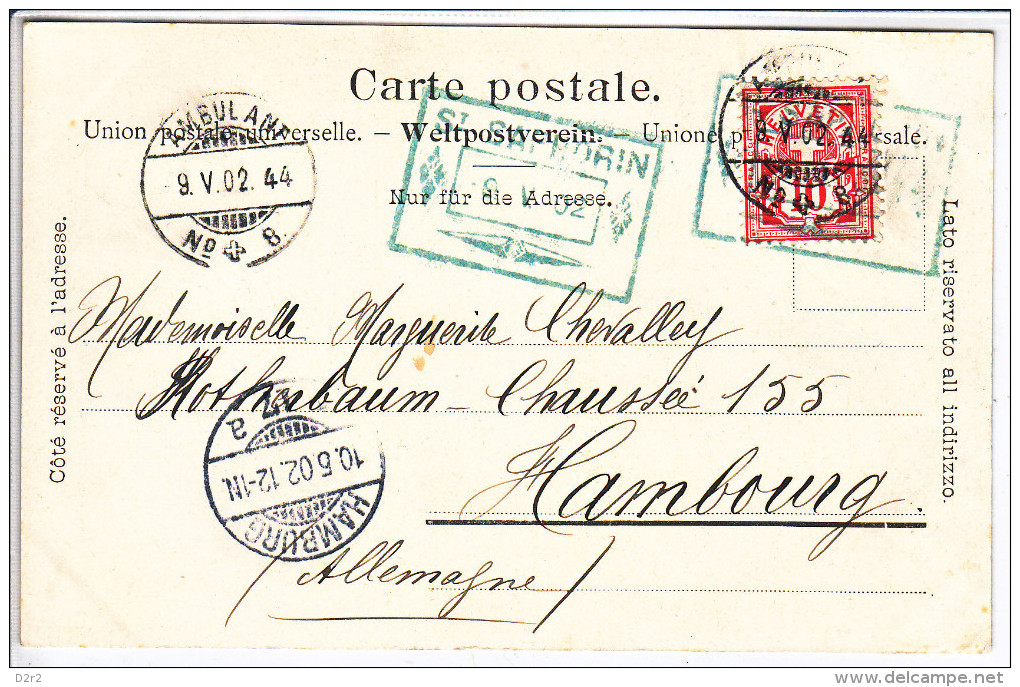 Carte postale.
Union postale universelle. — Weltpostverein. — Unione p sale.
Nur für die Adresse.
Côté réservé à l'adresse.
Lato riservato all indirizzo.
AMBULANT
9. V. 02. 44
No 8.
ST SAPHORIN
9 V 02
HELVETIA
10
9. V. 02. 44
No 8
Mademoiselle Marguerite Chevalley
Rothenbaum - Chaussée 155
Hambourg.
(Allemagne)
HAMBURG
10.5.02.12-1N.
a
D2r2
delcampe.net